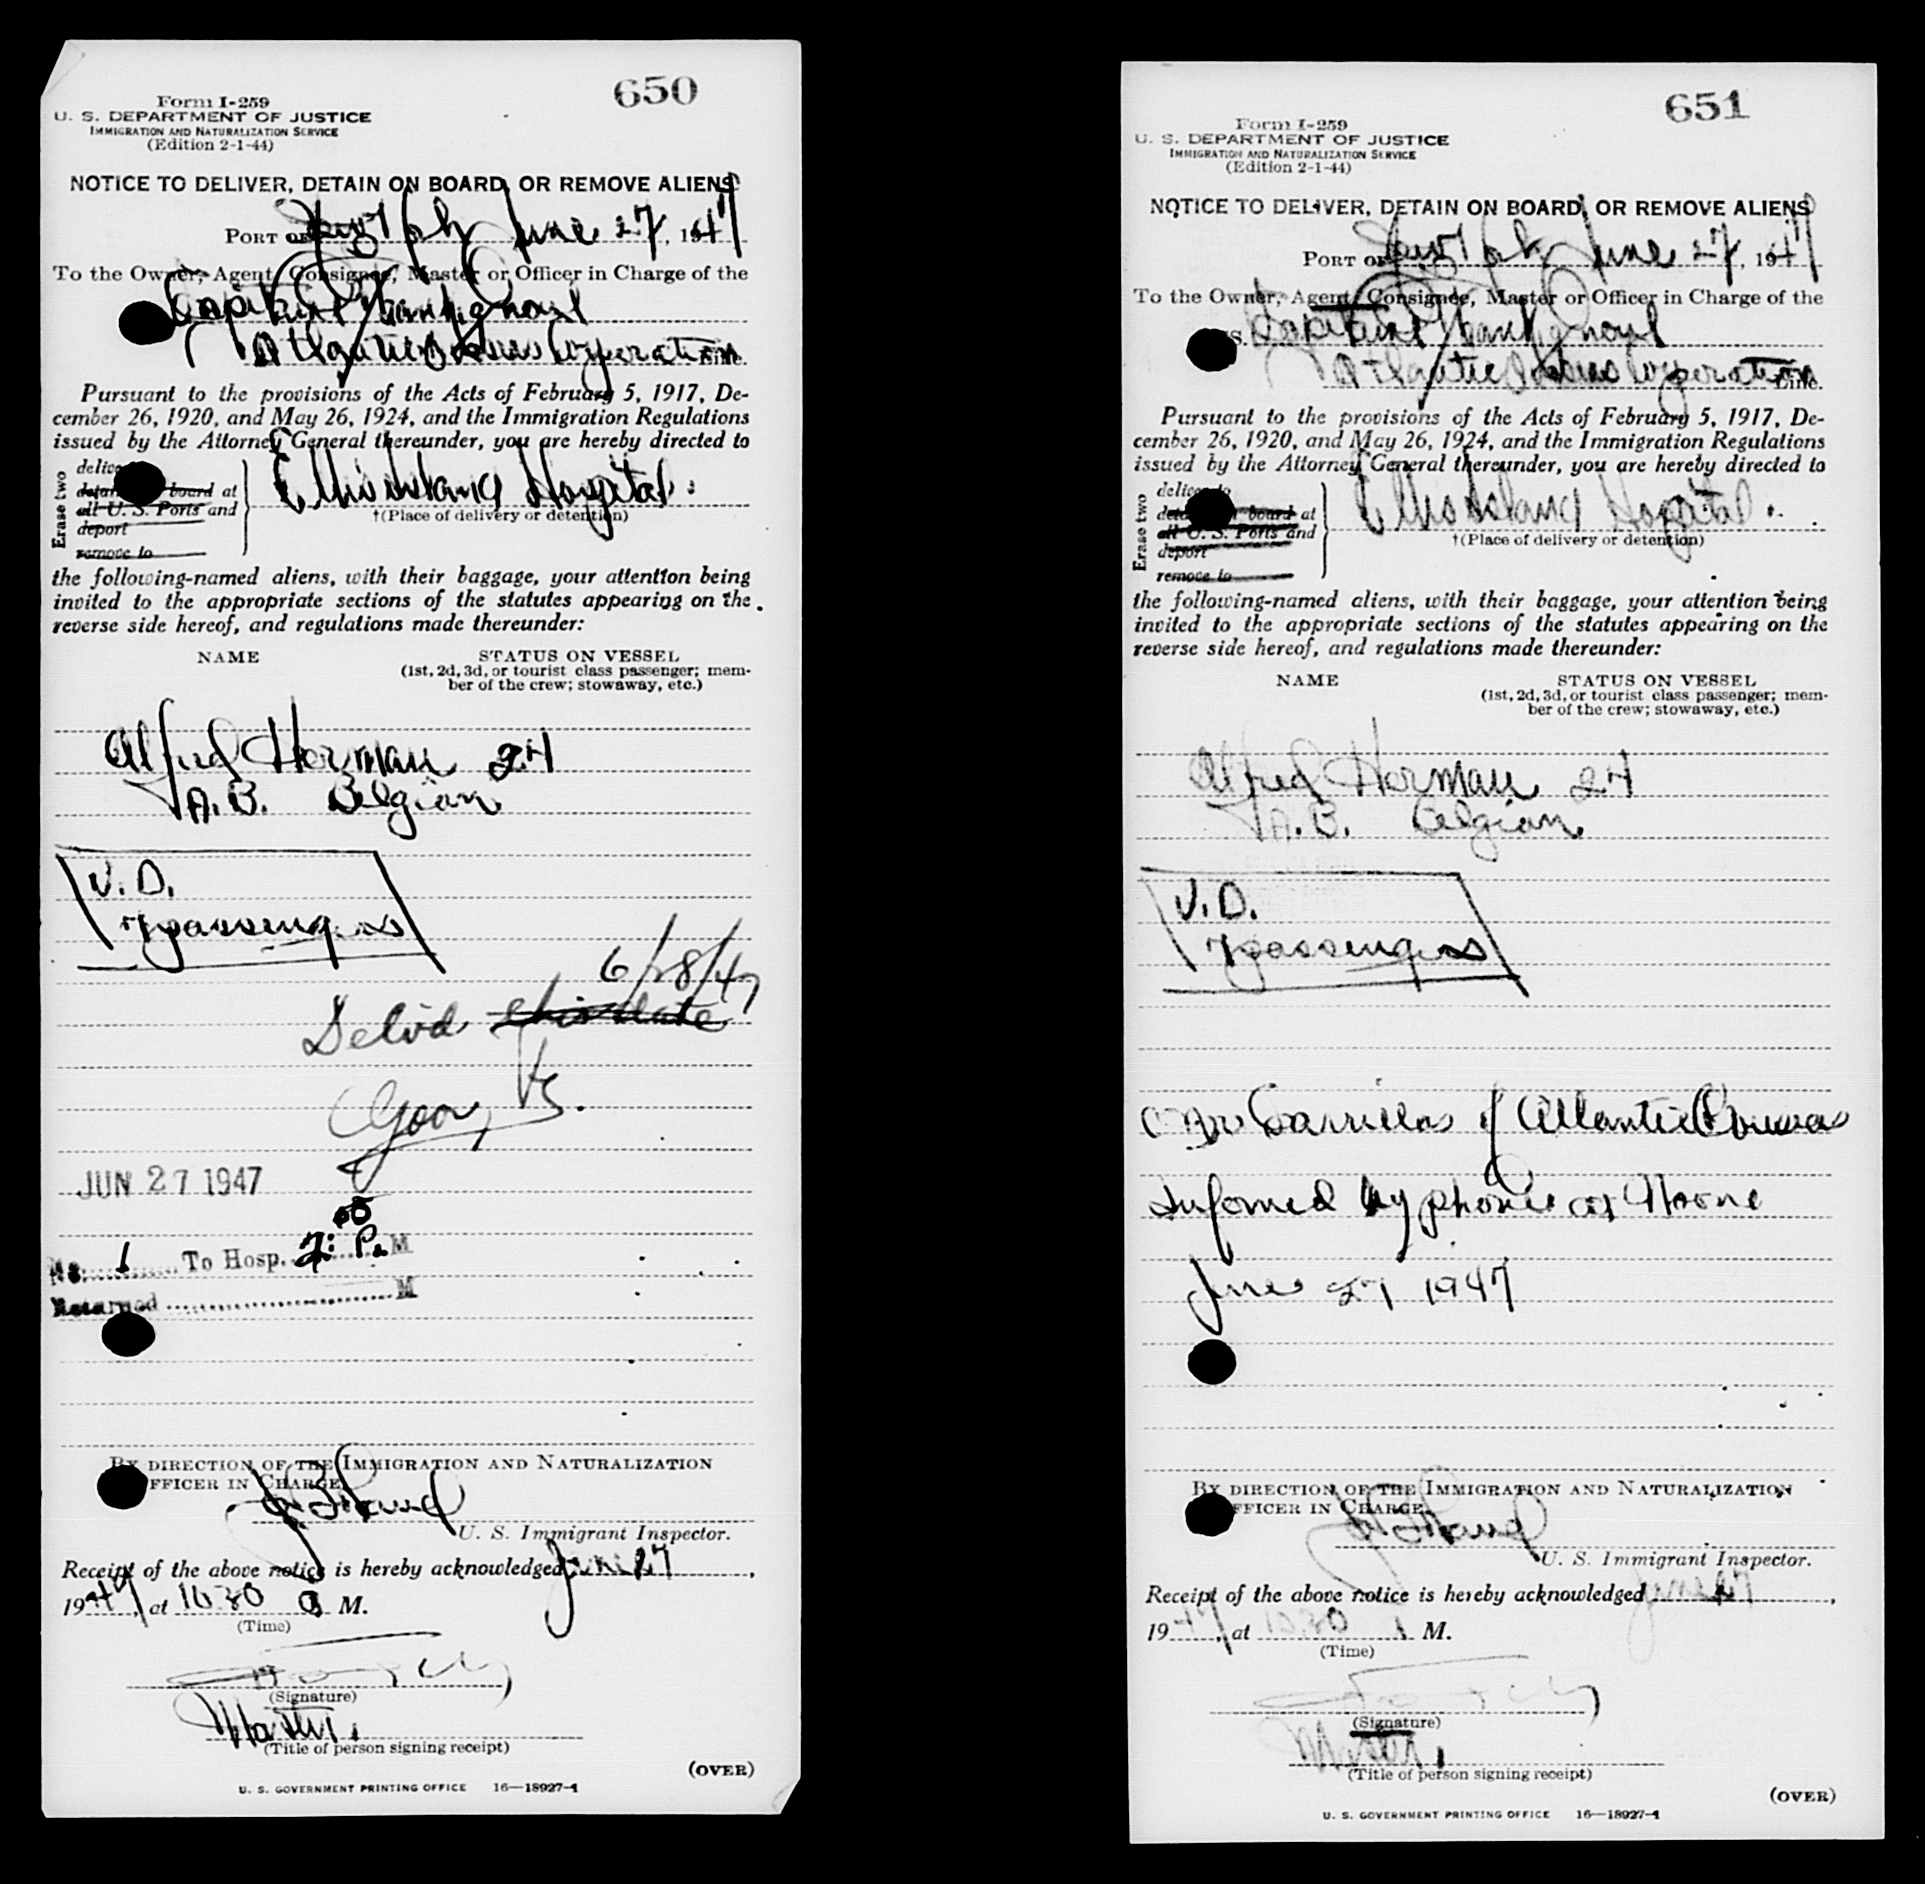 650
Form I-259
U. S. DEPARTMENT OF JUSTICE
IMMIGRATION AND NATURALIZATION SERVICE
(Edition 2-1-44)
NOTICE TO DELIVER, DETAIN ON BOARD, OR REMOVE ALIENS
PORT OF June 27, 1947
To the Owner, Agent, Consignee, Master or Officer in Charge of the
Atlantic Corporation Line.
Pursuant to the provisions of the Acts of February 5, 1917, De-
cember 26, 1920, and May 26, 1924, and the Immigration Regulations
issued by the Attorney General thereunder, you are hereby directed to
Erase two
board at
all U. S. Ports and
deport
remove to
Ellis Island Hospital
†(Place of delivery or detention)
the following-named aliens, with their baggage, your attention being
invited to the appropriate sections of the statutes appearing on the
reverse side hereof, and regulations made thereunder:
NAME STATUS ON VESSEL
(1st, 2d, 3d, or tourist class passenger; mem-
ber of the crew; stowaway, etc.)
Alfred Horman 24
A.B. Belgian
V.D.
7 passengers
6/28/47
Delvd this date
JUN 27 1947
No. 1 To Hosp. 2:05 P. M
Returned M
BY DIRECTION OF THE IMMIGRATION AND NATURALIZATION
OFFICER IN CHARGE
U. S. Immigrant Inspector.
Receipt of the above notice is hereby acknowledged June 27,
1947, at 10 30 M.
(Time)
(Signature)
Master.
(Title of person signing receipt)
(OVER)
U. S. GOVERNMENT PRINTING OFFICE 16—18927-1
651
Form I-259
U. S. DEPARTMENT OF JUSTICE
IMMIGRATION AND NATURALIZATION SERVICE
(Edition 2-1-44)
NOTICE TO DELIVER, DETAIN ON BOARD, OR REMOVE ALIENS
PORT OF June 27, 1947
To the Owner, Agent, Consignee, Master or Officer in Charge of the
Atlantic Corporation Line.
Pursuant to the provisions of the Acts of February 5, 1917, De-
cember 26, 1920, and May 26, 1924, and the Immigration Regulations
issued by the Attorney General thereunder, you are hereby directed to
Erase two
deliver to
board at
all U. S. Ports and
deport
remove to
Ellis Island Hospital
†(Place of delivery or detention)
the following-named aliens, with their baggage, your attention being
invited to the appropriate sections of the statutes appearing on the
reverse side hereof, and regulations made thereunder:
NAME STATUS ON VESSEL
(1st, 2d, 3d, or tourist class passenger; mem-
ber of the crew; stowaway, etc.)
Alfred Horman 24
A.B. Belgian
V.D.
7 passengers
of Atlantic
Informed by phone at Noone
June 27 1947
BY DIRECTION OF THE IMMIGRATION AND NATURALIZATION
OFFICER IN CHARGE
U. S. Immigrant Inspector.
Receipt of the above notice is hereby acknowledged June 27,
1947, at 10.30 M.
(Time)
(Signature)
Master.
(Title of person signing receipt)
(OVER)
U. S. GOVERNMENT PRINTING OFFICE 16—18927-1